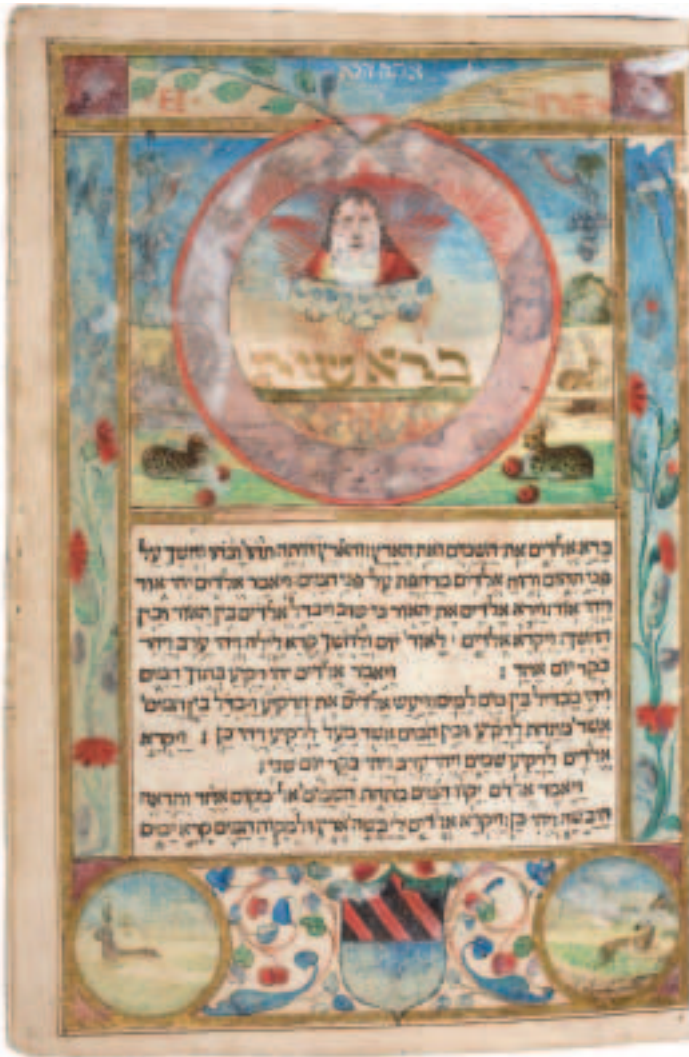 בראשית
ברא אלהים את השמים ואת הארץ והארץ היתה תהו ובהו וחשך על
פני תהום ורוח אלהים מרחפת על פני המים ויאמר אלהים יהי אור
ויהי אור וירא אלהים את האור כי טוב ויבדל אלהים בין האור ובין
החשך: ויקרא אלהים לאור יום ולחשך קרא לילה ויהי ערב ויהי
בקר יום אחד : ויאמר אלהים יהי רקיע בתוך המים
ויהי מבדיל בין מים למים ויעש אלהים את הרקיע ויבדל בין המים
אשר מתחת לרקיע ובין המים אשר מעל לרקיע ויהי כן : ויקרא
אלהים לרקיע שמים ויהי ערב ויהי בקר יום שני :
ויאמר אלהים יקוו המים מתחת השמים אל מקום אחד ותראה
היבשה ויהי כן: ויקרא אלהים ליבשה ארץ ולמקוה המים קרא ימים